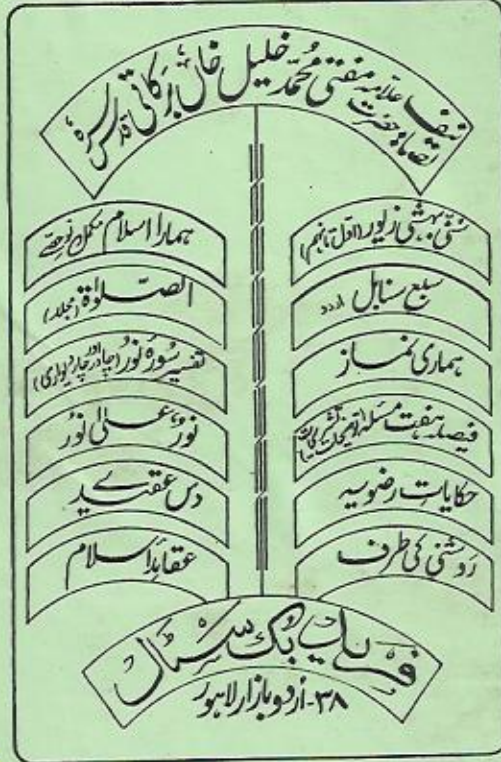 تصانیف
حضرت علامہ مفتی محمد خلیل خاں برکاتی قدس سرہ
سنی بہشتی زیور (اول تا نہم)
سبع سنابل اردو
ہماری نماز
فیصلہ ہفت مسئلہ
حکایات رضویہ
روشنی کی طرف
ہمارا اسلام مکمل نو حصے
الصلوٰۃ (مجلد)
تفسیر سورۂ نور (چادر اور چار دیواری)
نورٌ علیٰ نور
دس عقیدے
عقائد اسلام
فرید بک سٹال
۳۸-اردو بازار لاہور